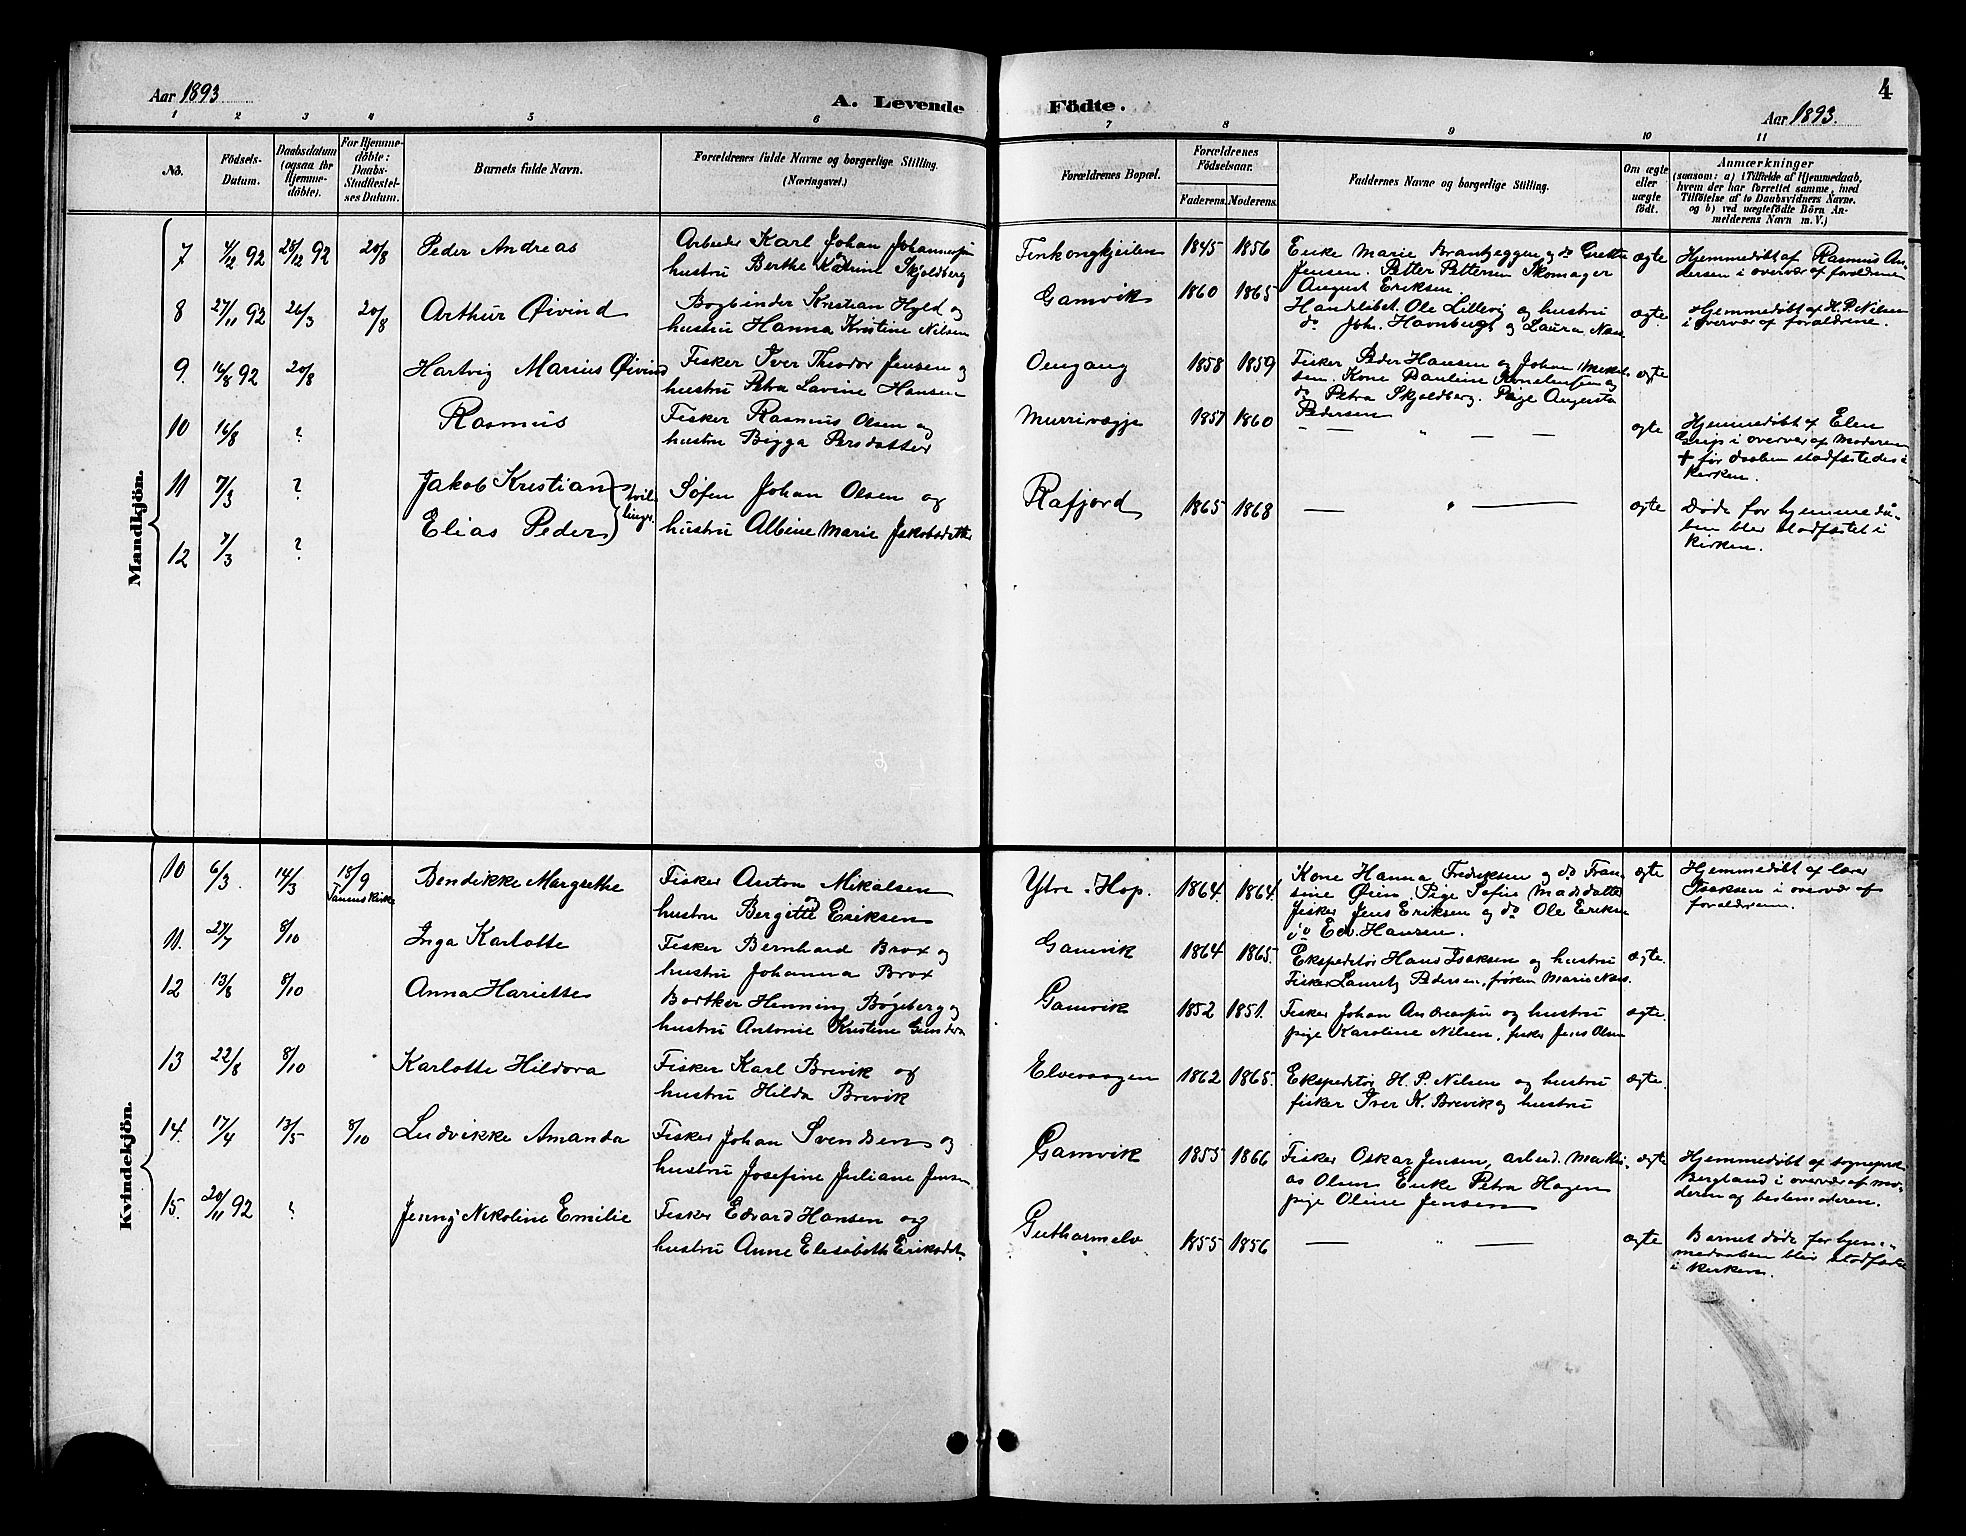 Aar 1893
A. Levende
Födte.
4
Aar 1893.
1 2 3 4 5 6 7 8 9 10 11
No.
Födsels-
Datum.
Daabsdatum
(ogsaa for
Hjemme-
döbte).
For Hjemme-
döbte:
Daabs-
Stadfæstel-
ses Datum.
Barnets fulde Navn.
Forældrenes fulde Navne og borgerlige Stilling.
(Næringsvei.)
Forældrenes Bopæl.
Forældrenes
Födselsaar.
Faderens. Moderens.
Faddernes Navne og borgerlige Stilling.
Om ægte
eller
uægte
födt.
Anmærkninger
(saasom: a) i Tilfælde af Hjemmedaab,
hvem der har forrettet samme, med
Tilföielse af to Daabsvidners Navne,
og b) ved uægtefödte Börn An-
melderens Navn m. V.)
Mandkjön.
7 4/12 92 28/12 92 20/8 Peder Andreas
Arbeder Karl Johan Johannesen
og
hustru Berthe Katrine Skjoldberg
Finkongkjeilen 1845 1856
Enke Marie Brandeggen og do Grethe
Jensen. Petter Pettersen Skomager
August Eriksen.
ægte
Hjemmedöbt af Rasmus An-
dersen i overvær af foraldrene
8 27/11 92 26/3 20/8 Arthur Öivind
Bogbinder Kristian Hyld og
hustru Hanna Kristine Nilsen
Gamvik 1860 1865
Handelsbet. Ole Lillevig og hustru
do Joh. Havnbergt og Laura Næss
ægte
Hjemmedöbt af H. P. Nilsen
i overvær af foraldrene.
9. 16/8 92 20/8 Hartvig Marius Öivind
Fisker Iver Theodor Jensen og
hustru Petra Lavine Hansen
Omgang 1858 1859
Fisker Peder Hansen og Johan Mikal-
sen. Kone Pauline Konstensen og
do Petra Skjoldberg. Pige Augusta
Pedersen
ægte
10 16/8 ? Rasmus
Fisker Rasmus Olsen og
hustru Bigga Persdatter
Murrivægje 1857 1860
— — " — —
ægte
Hjemmedöbt af Elen
Grip i overvær af Moderen
+ før daaben stadfæstedes i
kirken.
11 7/3 ? Jakob Kristian
12 7/3 ? Elias Peder
tvil-
linge.
Søfin Johan Olsen og
hustru Albine Marie Jakobsdatter
Rafjord 1865 1868 — " —
ægte
Døde før hjemmedaa-
ben blev stadfæstet i
kirken.
Kvindekjön.
10 6/3. 14/3 18/9
Tanens kirke
Bendikke Margrethe
Fisker Anton Mikalsen
og
hustru Bergitte Eriksen
Ytre Hop. 1864. 1864.
Kone Hanna Fredriksen og do Fran-
sine Öien. Pige Sofie Madsdatter
fisker Jens Eriksen og do Ole Eriksen
do Edv. Hansen.
ægte
Hjemmedöbt af lærer
Isaksen i overvær af
foraldrene.
11. 27/7 8/10 Inga Karlotte
Fisker Bernhard Brox og
hustru Johanna Brox
Gamvik 1864 1865.
Ekspeditør Hans Isaksen og hustru
Fisker Lauritz Pedersen, frøken Marie Næss.
ægte.
12 13/8 8/10 Anna Hariette
Bødker Henning Bögeberg og
hustru Antonie Kristine Gunders
Gamvik 1852 1851.
Fisker Johan Andreasen og hustru
pige Karoline Nilsen, fisker Jens Olsen
ægte.
13 22/8 8/10 Karlotte Hildora
Fisker Karl Brevik og
hustru Hilda Brevik
Elvevaagen 1862 1865.
Ekspeditør H. P. Nilsen og hustru
fisker Iver K. Brevik og hustru
ægte.
14. 17/4 13/5 8/10 Ludvikke Amanda
Fisker Johan Svendsen og
hustru Josefine Juliane Jensen
Gamvik 1855 1866
Fisker Oskar Jensen, arbeid. Mathi-
as Olsen Enke Petra Hagen
pige Oline Jensen
ægte
Hjemmedöbt af sognepræst
Bergland i overvær af mo-
deren og bestemoderen.
15. 20/11 92 ? Jenny Nikoline Emilie
Fisker Edvard Hansen og
hustru Anne Elisabeth Eriksdat.
Guthormelv 1855 1856 — " —
ægte
Barnet døde før hjem-
medaaben blev stadfæstet
i kirken.